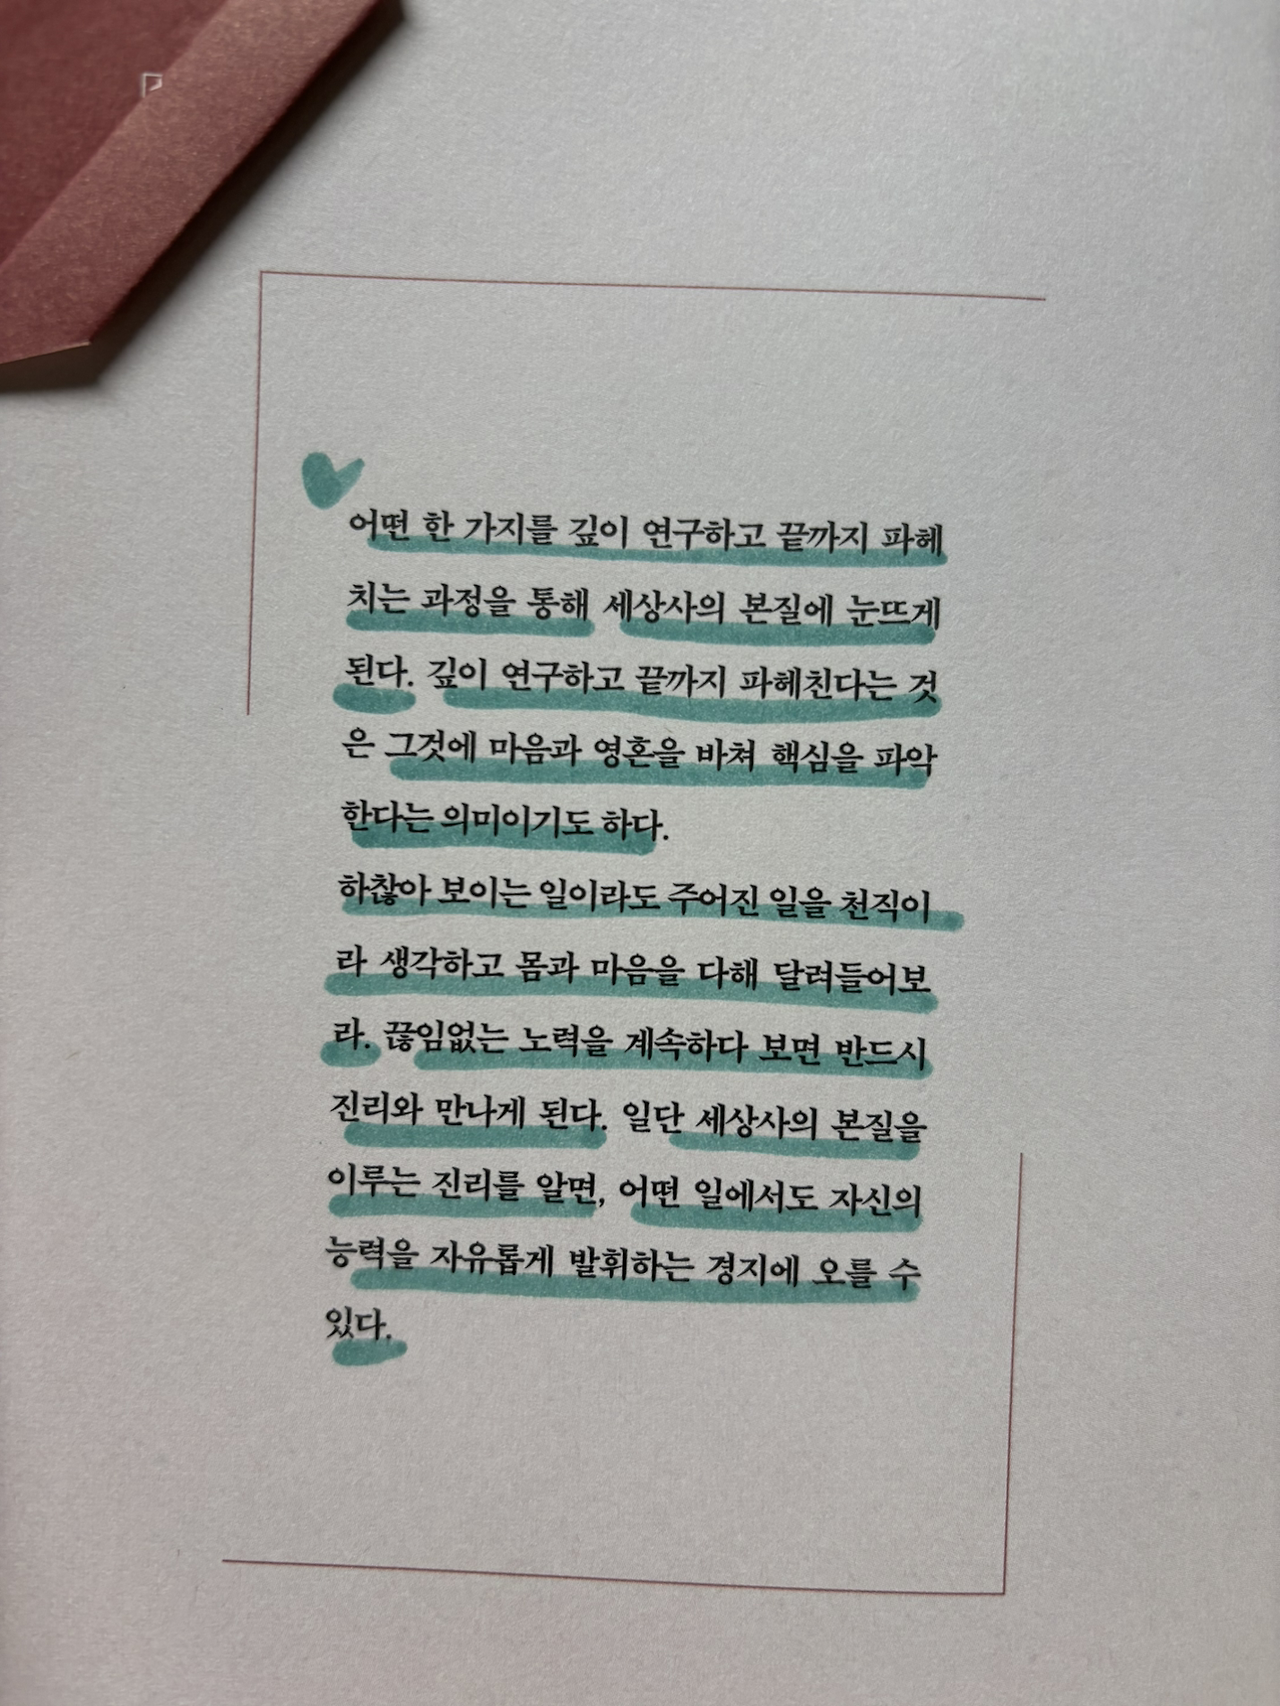 어떤 한 가지를 깊이 연구하고 끝까지 파헤
치는 과정을 통해 세상사의 본질에 눈뜨게
된다. 깊이 연구하고 끝까지 파헤친다는 것
은 그것에 마음과 영혼을 바쳐 핵심을 파악
한다는 의미이기도 하다.
하찮아 보이는 일이라도 주어진 일을 천직이
라 생각하고 몸과 마음을 다해 달려들어보
라. 끊임없는 노력을 계속하다 보면 반드시
진리와 만나게 된다. 일단 세상사의 본질을
이루는 진리를 알면, 어떤 일에서도 자신의
능력을 자유롭게 발휘하는 경지에 오를 수
있다.